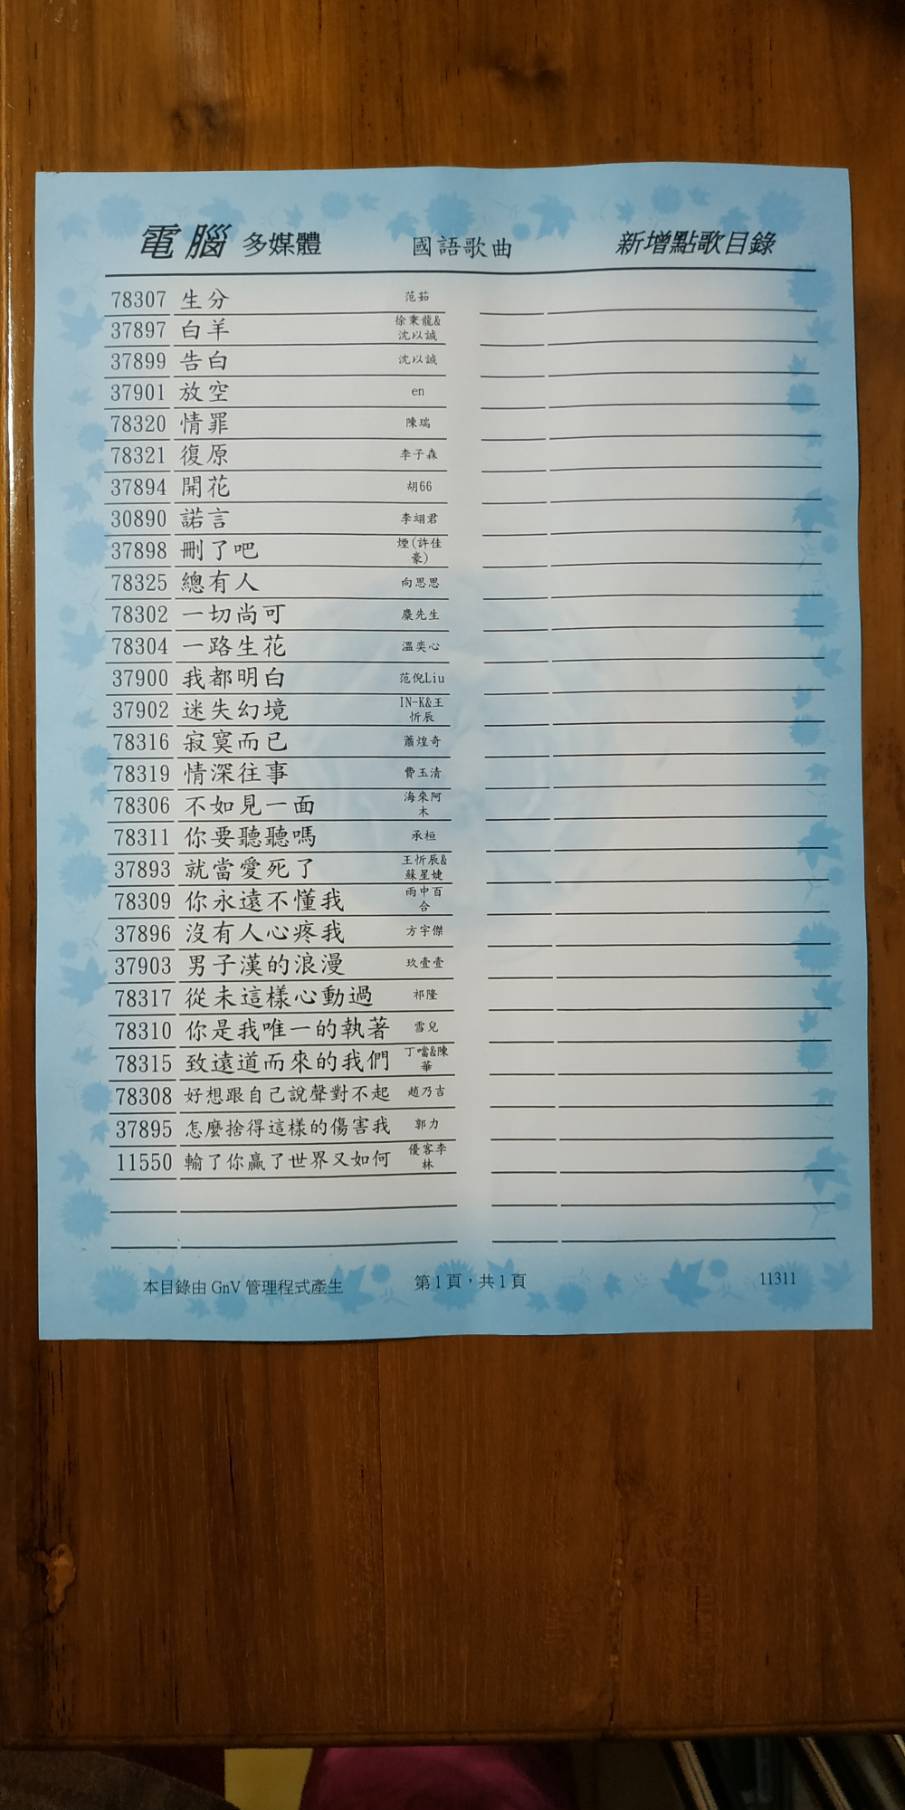 電腦 多媒體 國語歌曲 新增點歌目錄
78307 生分 范茹
37897 白羊 徐秉龍&沈以誠
37899 告白 沈以誠
37901 放空 en
78320 情罪 陳瑞
78321 復原 李子森
37894 開花 胡66
30890 諾言 李翊君
37898 刪了吧 煙(許佳豪)
78325 總有人 向思思
78302 一切尚可 麋先生
78304 一路生花 溫奕心
37900 我都明白 范倪Liu
37902 迷失幻境 IN-K&王忻辰
78316 寂寞而已 蕭煌奇
78319 情深往事 費玉清
78306 不如見一面 海來阿木
78311 你要聽聽嗎 承桓
37893 就當愛死了 王忻辰&蘇星婕
78309 你永遠不懂我 雨中百合
37896 沒有人心疼我 方宇傑
37903 男子漢的浪漫 玖壹壹
78317 從未這樣心動過 祁隆
78310 你是我唯一的執著 雪兒
78315 致遠道而來的我們 丁噹&陳華
78308 好想跟自己說聲對不起 趙乃吉
37895 怎麼捨得這樣的傷害我 郭力
11550 輸了你贏了世界又如何 優客李林
本目錄由 GnV 管理程式產生 第1頁，共1頁 11311